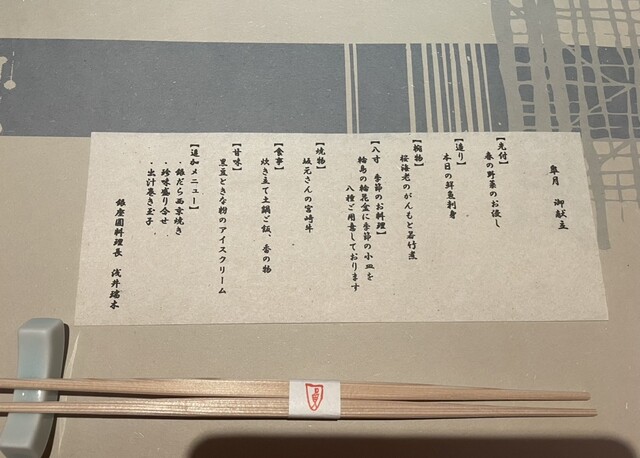 皐月　御献立
【先付】
春の野菜のお浸し
【造り】
本日の鮮魚刺身
【椀物】
桜海老のがんもと若竹煮
【八寸　季節のお料理】
輪島の輪花盆に季節の小皿を
八種ご用意しております
【焼物】
坂元さんの宮崎牛
【食事】
炊き立て土鍋ご飯、香の物
【甘味】
黒豆ときな粉のアイスクリーム
【追加メニュー】
・銀だら西京焼き
・珍味盛り合せ
・出汁巻き玉子
銀座圓料理長　浅井瑞木